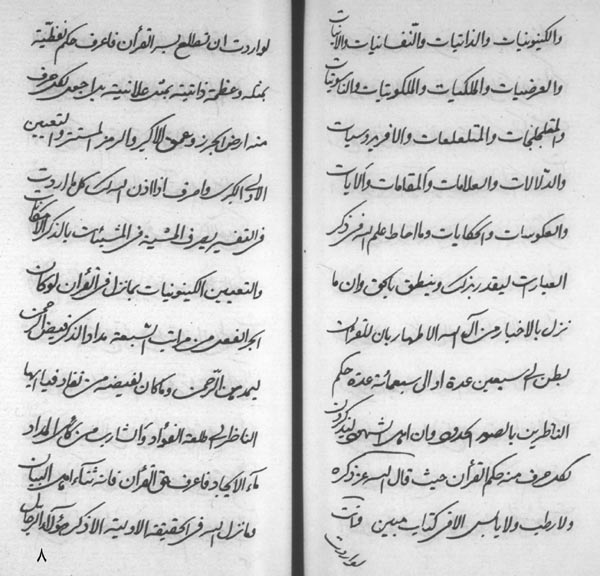 والكينونيات والذاتيات والنفسانيات والانيات
والعرضيات والملكيات والملكوتيات والناسوتيات
والمتلجلجات والمتلعلعات والافريدوسيات
والدلالات والعلامات والمقامات والآيات
والعكوسات والحكايات وما احاط علم الله فى ذكر
العبارات ليقدر بذلك وينطق بالحق وان ما
نزل بالاخبار من آل الله الاطهار بان للقرآن
بطن الى سبعين عدة او الى سبعمائة عدة حكم
الناظرين بالصور الحدود وان اهل
لكل حرف منه حكم القرآن حيث قال الله عز ذكره
ولا رطب ولا يابس الا فى كتاب مبين وانت
لو اردت
لو اردت ان تطلع بسر القرآن فاعرف حكم لفظية
بمثل وعظمة ذاتية بمثل علانيته بداجعل لكل حرف
منه ارض الجرز وعمق الاكبر والرمز المستسر والتعيين
الاول الكبرى واعرف اذا اذن الله لك كلما اردت
فى التفسير بصرف المشية فى المشيئات بالذكر
والتعيين الكينونيات بما نزل فى القرآن لو كان
ابحر الفعل من مراتب السبعة مدادا لذكر فيض الرحمن
ليمد من الرحمن وما كان لفيضه من نفاد فيا ايها
الناظر الى طلعة الفؤاد والشارب من كاس المداد
ماء الايجاد فاعرف حق القرآن فانه ثناء اهل البيان
وما نزل الله فى الحقيقة الاولية الا ذكر هؤلاء الرجال
٨